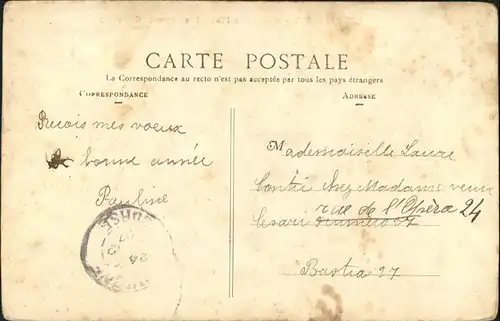 CARTE POSTALE
La Correspondance au recto n'est pas acceptée par tous les pays étrangers
CORRESPONDANCE
ADRESSE
Recois mes voeux
bonne année
Pauline
Mademoiselle Laure
Conti chez Madame veuve
Cesari
rue de l'Opéra 24
Bastia 27